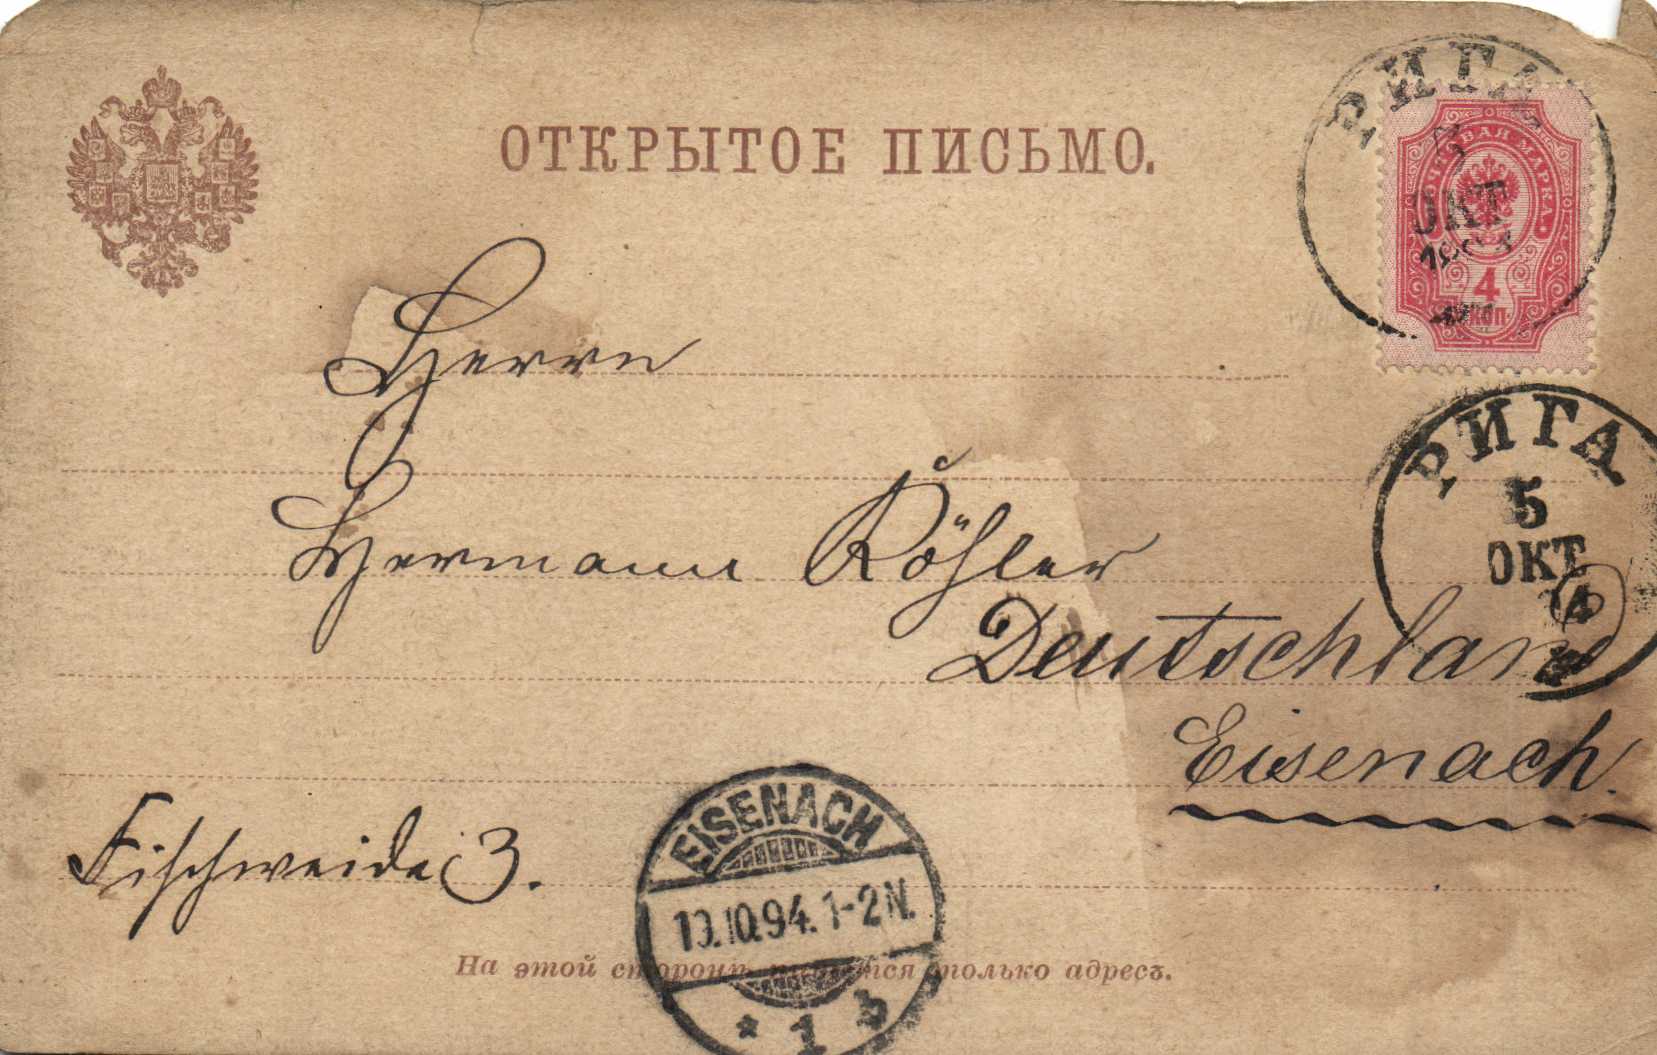 ОТКРЫТОЕ ПИСЬМО.
РИГА
ОКТ
ПОЧТОВАЯ МАРКА
4
КОП.
Herrn
Hermann Köhler
РИГА
5
ОКТ
Deutschland
Eisenach.
Fischweide 3.
EISENACH
10.94. 1-2N.
* 1 b
На этой сторонѣ пишется только адресъ.